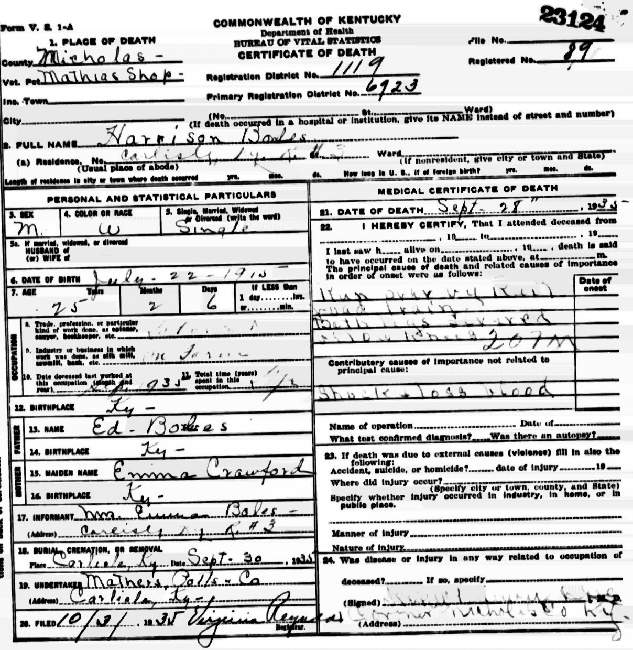 Form V. S. 1-A
COMMONWEALTH OF KENTUCKY
Department of Health
BUREAU OF VITAL STATISTICS
CERTIFICATE OF DEATH
23124
File No.
Registered No. 89
1. PLACE OF DEATH
County Nicholas -
Vot. Pct. Mathias Shop -
Inc. Town
City
Registration District No. 1119
Primary Registration District No. 6923
(No. St. Ward)
(If death occurred in a hospital or institution, give its NAME instead of street and number)
2. FULL NAME Harrison Boles
(a) Residence, No. Carlisle, Ky. R #3 Ward
(Usual place of abode) (If nonresident, give city or town and State)
Length of residence in city or town where death occurred yrs. mos. ds. How long in U. S., if of foreign birth? yrs. mos. ds.
PERSONAL AND STATISTICAL PARTICULARS
3. SEX M.
4. COLOR OR RACE W
5. Single, Married, Widowed or Divorced (write the word) Single
5a. If married, widowed, or divorced
HUSBAND of
(or) WIFE of
6. DATE OF BIRTH July - 22 - 1915
7. AGE Years Months Days If LESS than
25 2 6 1 day hrs.
or min.
OCCUPATION
8. Trade, profession, or particular
kind of work done, as spinner,
sawyer, bookkeeper, etc.
9. Industry or business in which
work was done, as silk mill,
sawmill, bank, etc. on Farm
10. Date deceased last worked at
this occupation (month and
year) 1935
11. Total time (years)
spent in this
occupation
12. BIRTHPLACE Ky -
FATHER
13. NAME Ed - Boles
14. BIRTHPLACE Ky -
MOTHER
15. MAIDEN NAME Emma Crawford
16. BIRTHPLACE Ky -
17. INFORMANT Mrs. Emma Boles -
(Address) Carlisle Ky R #3
18. BURIAL, CREMATION, OR REMOVAL
Place Carlisle, Ky. Date Sept - 30, 1935
19. UNDERTAKER Mathers Potts - Co
(Address) Carlisle, Ky -
20. FILED 10/3/ 1935 Virginia Reynolds
Registrar.
MEDICAL CERTIFICATE OF DEATH
21. DATE OF DEATH Sept - 28", 1935
22. I HEREBY CERTIFY, That I attended deceased from
, 19 to , 19
I last saw h alive on , 19 , death is said
to have occurred on the date stated above, at m.
The principal cause of death and related causes of importance
in order of onset were as follows:
Date of
onset
Run over by Rail
road train
Both legs severed
207M
Contributory causes of importance not related to
principal cause:
Shock & loss blood
Name of operation Date of
What test confirmed diagnosis? Was there an autopsy?
23. If death was due to external causes (violence) fill in also the
following:
Accident, suicide, or homicide? date of injury 19
Where did injury occur?
(Specify city or town, county, and State)
Specify whether injury occurred in industry, in home, or in
public place.
Manner of injury
Nature of injury
24. Was disease or injury in any way related to occupation of
deceased? If so, specify
(Signed)
Coroner Nicholas Co Ky.
(Address)